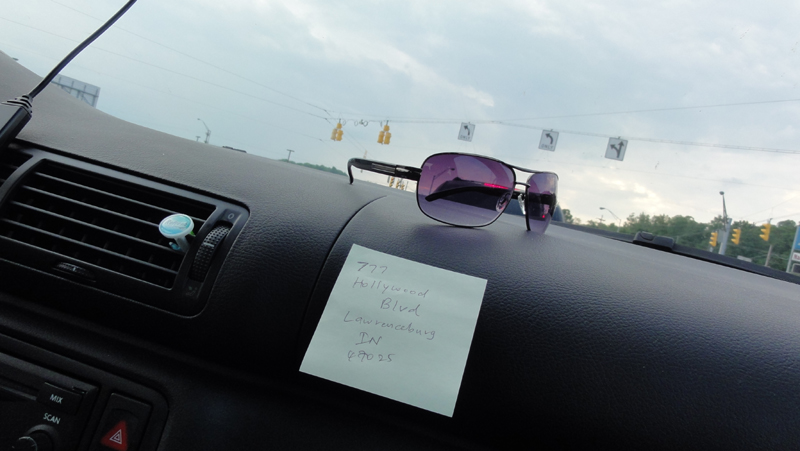 777
Hollywood
Blvd
Lawrenceburg
IN
47025
MIX
SCAN